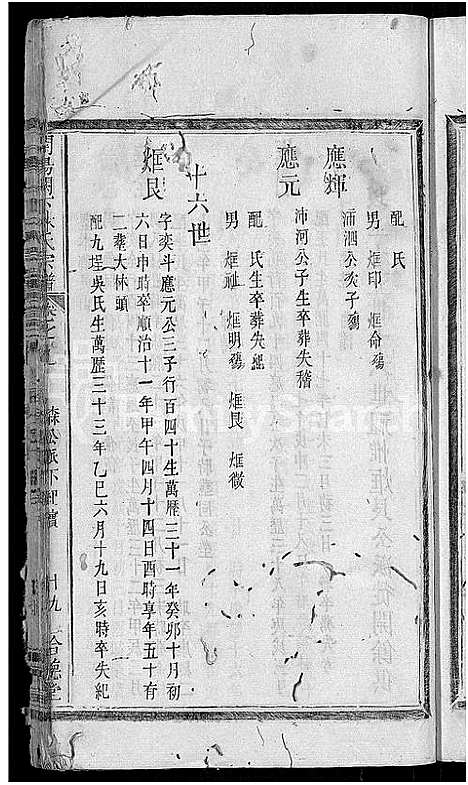 配 氏
男 烜印 烜命殤
應輝
沛泗公次子殤
應元
沛河公子生卒葬失稽
配 氏生卒葬失紀
男 烜祉 烜明殤 烜艮 烜微
十六世
烜艮
字奕斗應元公三子行百四十生萬歷三十一年癸卯十月初
六日申時卒順治十一年甲午四月十四日酉時享年五十有
二葬大林頭
配九埕吳氏生萬歷三十三年乙巳六月十九日亥時卒失紀
林氏宗譜
森公派下
十九
FamilySearch